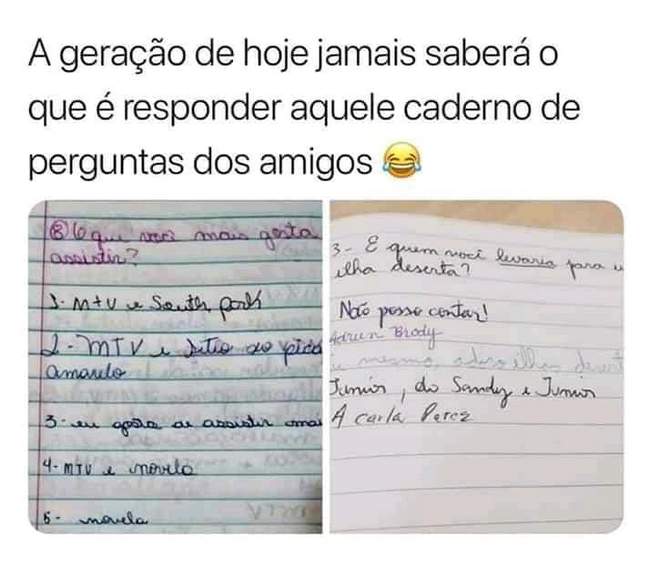 A geração de hoje jamais saberá o
que é responder aquele caderno de
perguntas dos amigos 😂
8) O que você mais gosta
assistir?
1- MTV e South park
2- MTV e sitio do pica
amarelo
3- eu gosto de assistir
4- MTV e novela
5- novela
3- E quem você levaria para u
ilha deserta?
Não posso contar!
Adrien Brody
Junior, do Sandy e Junior
A carla Perez